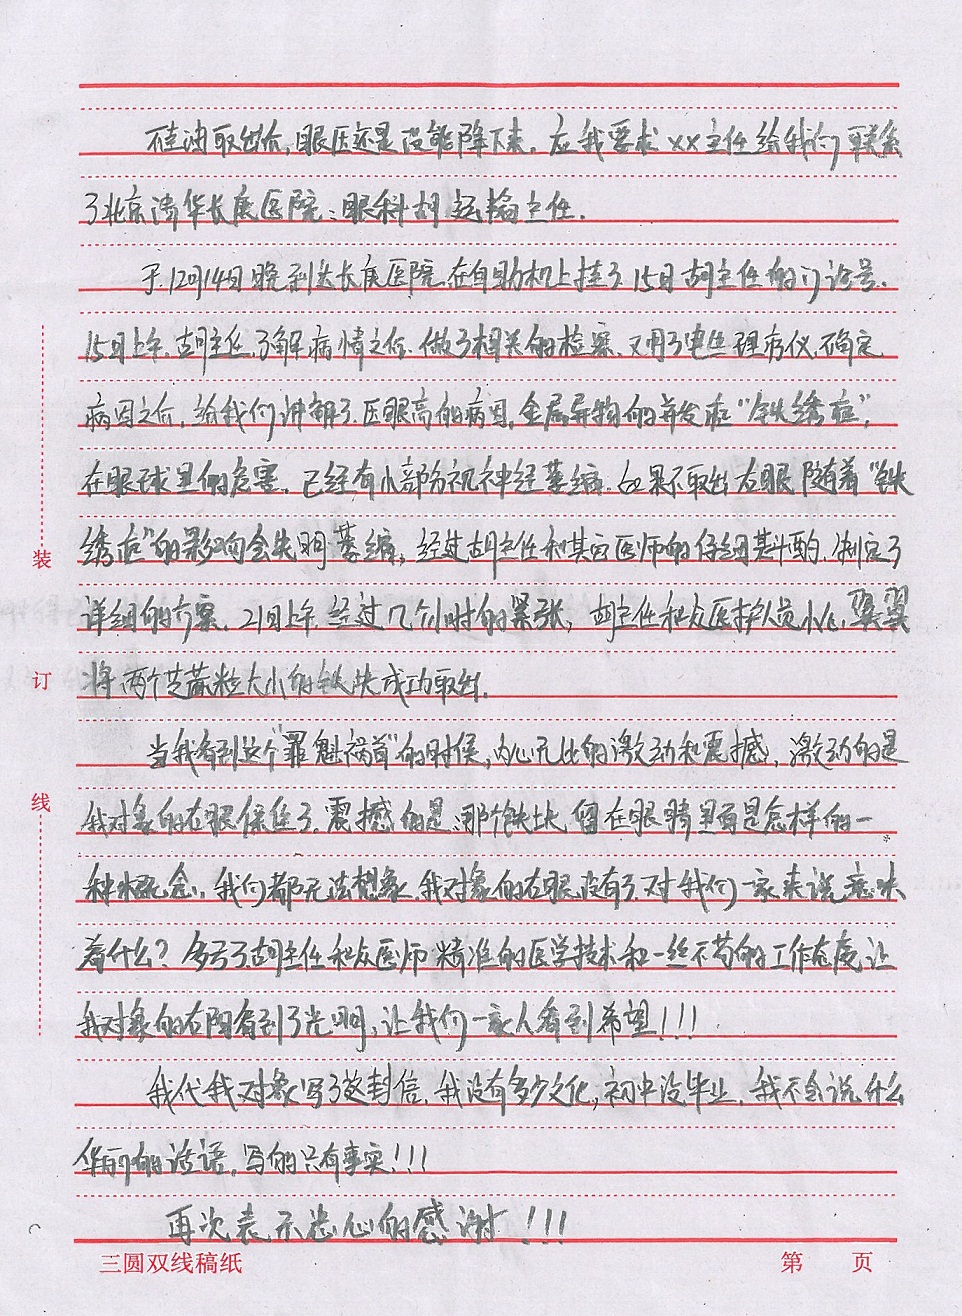 硅油取出后,眼压还是没能降下来。应我要求XX主任给我们联系
了北京清华长庚医院:眼科胡运韬主任.
于12月14日晚到达长庚医院.在自助机上挂了15日胡主任的门诊号.
15日上午.胡主任了解病情之后.做了相关的检察.又用了电生理疗仪.确定
病因之后,给我们讲解了.医眼高的病因.金属异物的并发症"铁绣症",
在眼球里的危害.已经有小部分视神经萎缩.如果不取出右眼随着"铁
绣症"的影响会失明萎缩,经过胡主任和其它医师的仔细斟酌.制定了
详细的方案.21日上午.经过几个小时的紧张,胡主任和众医护人员小心翼翼
将两个芝蔴粒大小的铁块成功取出.
当我看到这个"罪魁祸首"的时侯,内心无比的激动和震撼,激动的是
我对象的右眼保住了.震撼的是:那个铁块留在眼睛里面是怎样的一
种概念,我们都无法想象.我对象的右眼没有了.对我们一家来说意味
着什么?多亏了胡主任和众医师精准的医学技术和一丝不苟的工作态度,让
我对象的右眼看到了光明,让我们一家人看到希望!!!
我代我对象写了这封信.我没有多少文化,初中没毕业,我不会说什么
华丽的话语,写的只有事实!!!
再次表示衷心的感谢!!!
装
订
线
三圆双线稿纸
第 页